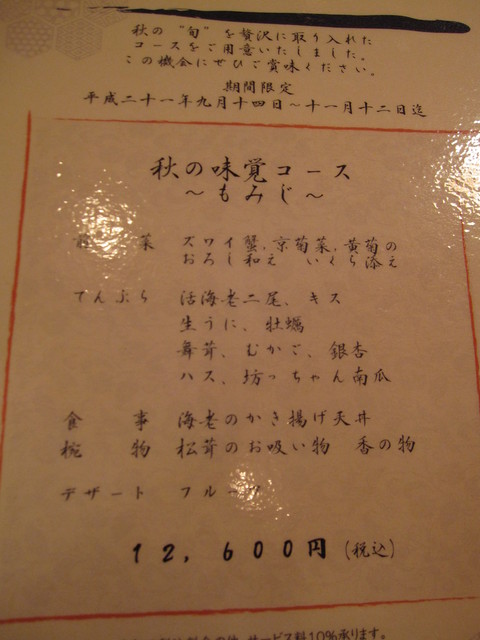 秋の"旬"を贅沢に取り入れた
コースをご用意いたしました。
この機会にぜひご賞味ください。
期間限定
平成二十一年九月十四日～十一月十二日迄
秋の味覚コース
～もみじ～
前 菜 ズワイ蟹、京菊菜、黄菊の
おろし和え いくら添え
てんぷら 活海老二尾、キス
生うに、牡蠣
舞茸、むかご、銀杏
ハス、坊っちゃん南瓜
食 事 海老のかき揚げ天丼
椀 物 松茸のお吸い物 香の物
デザート フルーツ
12,600円(税込)
サービス料10%承ります。